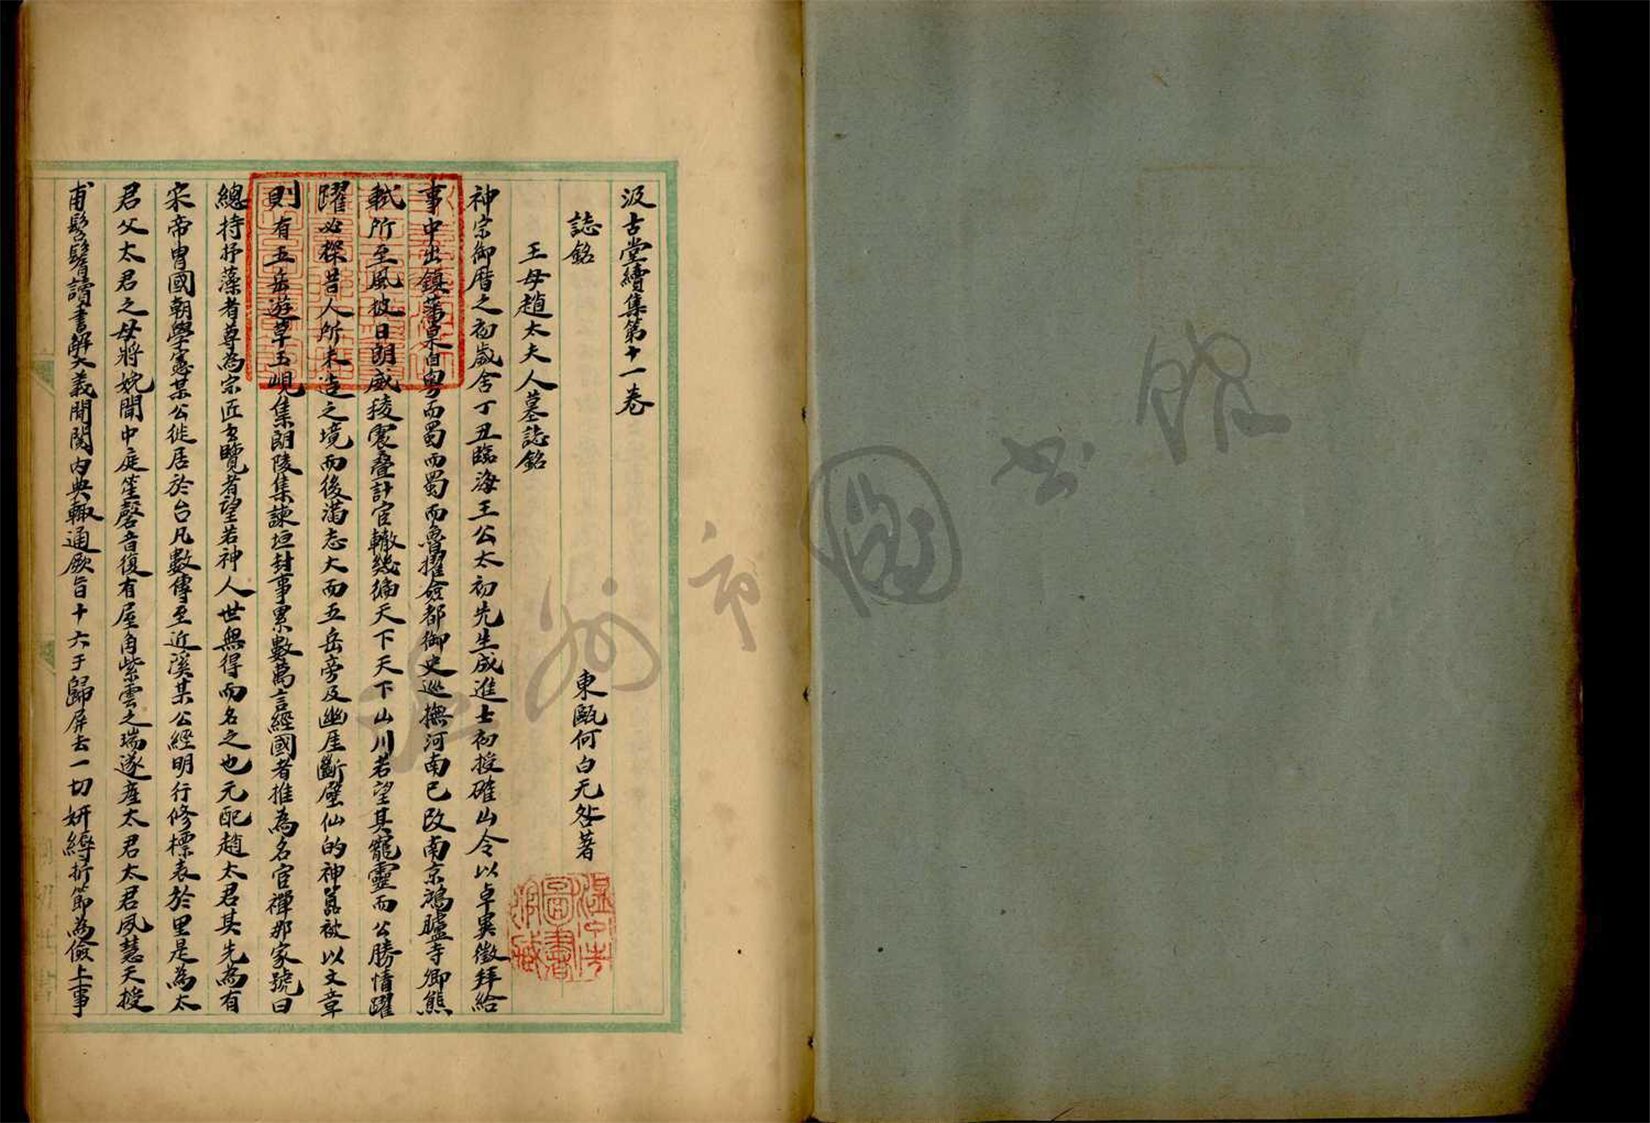 汲古堂續集第十一卷
東甌何白无咎著
誌銘
王母趙太夫人墓誌銘
神宗御曆之初歲舍丁丑臨海王公太初先生成進士初授確山令以卓異徵拜給
事中出鎮藩臬自粤而蜀而蜀而魯擢僉都御史巡撫河南已改南京鴻臚寺卿熊
軾所至風披日朗威稜震疊計宦轍幾徧天下天下山川若望其寵靈而公勝情躍
躍必探昔人所未造之境而後滿志大而五岳旁及幽厓斷壁仙的神囂被以文章
則有五岳遊草玉峴集朗陵集諫垣封事累數萬言經國者推為名宦禪那家號曰
總持抒藻者尊為宗匠玄覽者望若神人世無得而名之也元配趙太君其先為有
宋帝胄國朝學憲某公徙居於台凡數傳至近溪某公經明行修標表於里是為太
君父太君之母將娩聞中庭笙磬音復有屋角紫雲之瑞遂産太君太君夙慧天授
甫髫髻讀書解大義閒閱内典輒通厥旨十六于歸屏去一切妍縟折節為儉上事
溫州市圖書館藏
溫州市圖書館